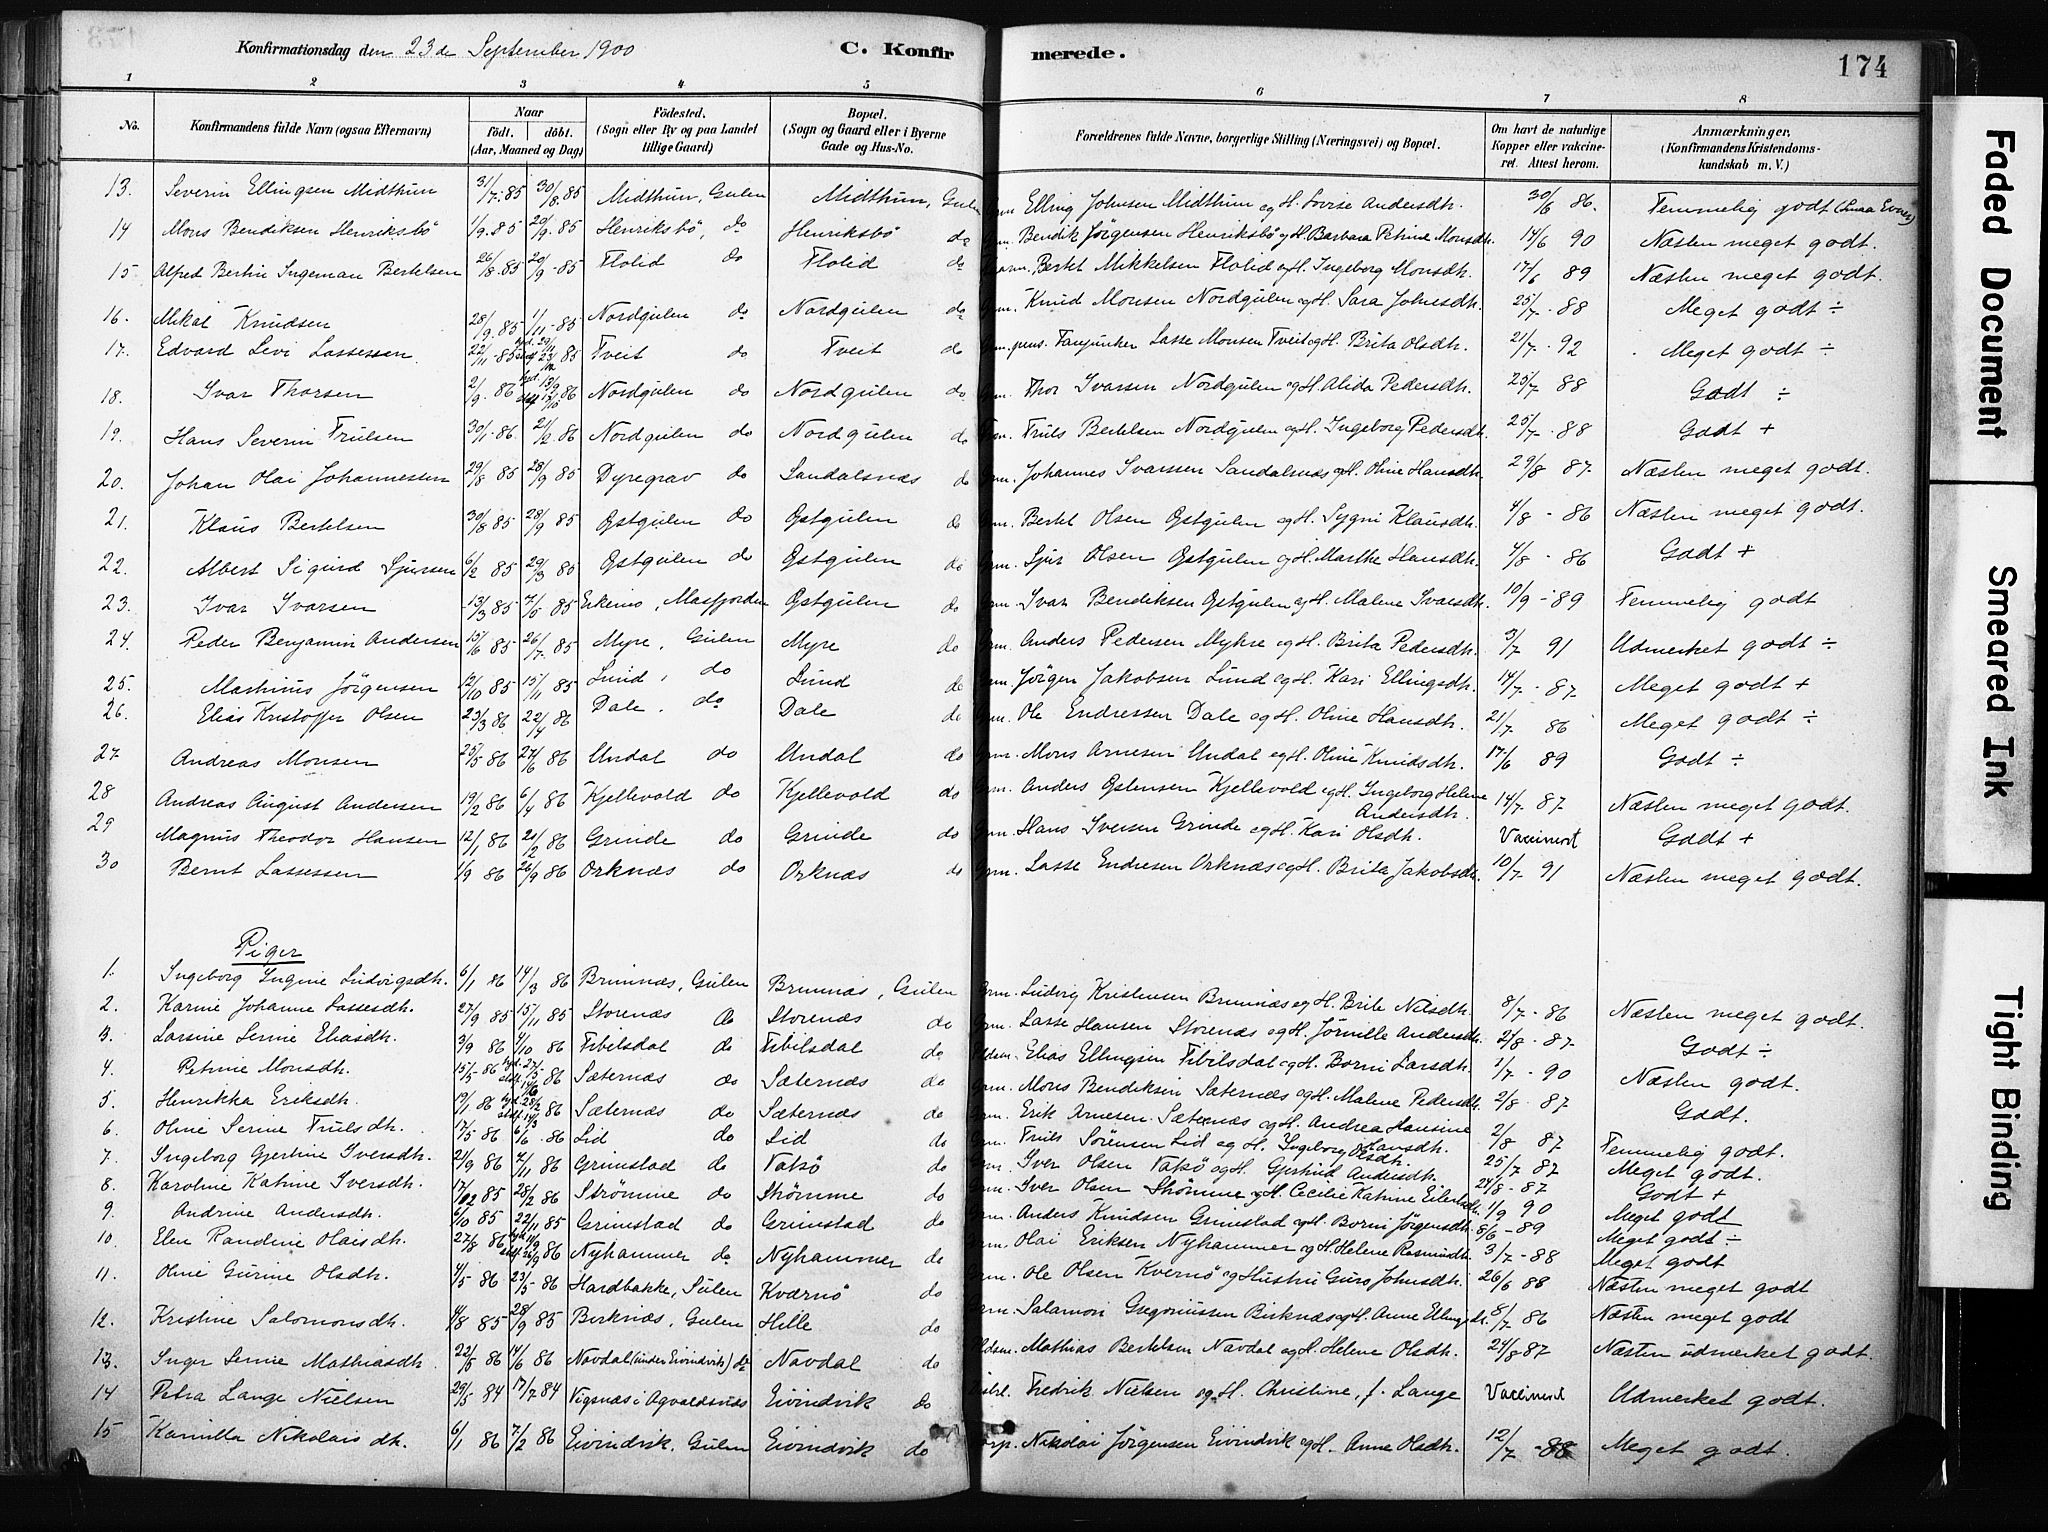 Konfirmationsdag den 23de September 1900 C. Konfirmerede. 174
1 2 3 4 5 6 7 8
No. Konfirmandens fulde Navn (ogsaa Efternavn) Naar födt. döbt. (Aar, Maaned og Dag) Födested. (Sogn eller By og paa Landet tillige Gaard) Bopæl. (Sogn og Gaard eller i Byerne Gade og Hus-No. Forældrenes fulde Navne, borgerlige Stilling (Næringsvei) og Bopæl. Om havt de naturlige Kopper eller vakcineret. Attest herom. Anmærkninger. (Konfirmandens Kristendomskundskab m. V.)
13. Severin Ellingsen Midthun 31/7. 85 30/8. 85 Midthun, Gulen Midthun, Gulen Gm. Elling Johnsen Midthun og H. Lovise Andersdh. 30/6 86. Temmelig godt (Smaa Evner)
14 Mons Bendiksen Henriksbö 1/9. 85 20/9. 85 Henriksbö, do Henriksbö do Gm. Bendik Jörgensen Henriksbö og H. Barbara Petrine Monsdh. 14/6 90 Næsten meget godt.
15. Alfred Bertin Ingeman Bertelsen 26/8. 85 20/9 - 85 Flolid do Flolid do Bertel Mikkelsen Flolid og H. Ingeborg Monsdh. 17/6 89 Næsten meget godt.
16. Mikal Knudsen 28/9. 85 1/11 - 85 Nordgulen do Nordgulen do Gm. Knud Monsen Nordgulen og H. Sara Johnsdh. 25/7 - 88 Meget godt ÷
17. Edvard Levi Lassesen 22/11 - 85 85 Tveit do Tveit do Gm. pens. Fanjunker Lasse Monsen Tveit og H. Brita Olsdh. 21/7 - 92 Meget godt ÷
18. Ivar Thorsen 2/9. 86 86 Nordgulen do Nordgulen do Gm. Thor Ivarsen Nordgulen og H. Alida Pedersdh. 25/7 - 88 Godt ÷
19. Hans Severin Trulsen 30/1 - 86. 21/2 86 Nordgulen do Nordgulen do Gm. Truls Bertelsen Nordgulen og H. Ingeborg Pedersdh. 25/7 - 88 Godt +
20. Johan Olai Johannessen 29/8 85 28/9 85 Dyregrav do Sandalsnæs do Gm. Johannes Ivarssen Sandalsnæs og H. Oline Hansdh. 29/8 87. Næsten meget godt.
21. Klaus Bertelsen 30/8 85 28/9 85 Østgulen do Østgulen do Gm. Bertel Olsen Østgulen og H. Sygni Klausdh. 4/8 - 86 Næsten meget godt.
22. Albert Sigurd Sjursen 6/2 85 29/3 85 Østgulen do Østgulen do Gm. Sjur Olsen Østgulen og H. Marthe Hansdh. 4/8 - 86 Godt +
23. Ivar Ivarsen 13/3 85 7/5 85 Erkenes, Masfjorden Østgulen do Gm. Ivar Bendiksen Østgulen og H. Malene Ivarsdh. 10/9 - 89 Temmelig godt
24. Peder Benjamin Andersen 15/6 85 26/7. 85 Myre, Gulen Myre do Gm. Anders Pedersen Myhre og H. Brita Pedersdh. 3/7 91 Udmerket godt ÷
25. Martinus Jörgensen 12/10 85 15/11 85 Lund, do Lund do Gm. Jörgen Jakobsen Lund og H. Kari Ellingsdh. 14/7 - 87 Meget godt +
26. Elias Kristoffer Olsen 23/3 86 22/4 86 Dale, do Dale do Gm. Ole Endressen Dale og H. Oline Hansdh. 21/7 86 Meget godt ÷
27 Andreas Monsen 25/5 86 27/6 86 Undal do Undal do Gm. Mons Arnesen Undal og H. Oline Knudsdh. 17/6 89 Godt ÷
28 Andreas August Andersen 19/2 86 6/4 86 Kjellevold do Kjellevold do Gm. Anders Østensen Kjellevold og H. Ingeborg Helene Andersdh. 14/7 - 87 Næsten meget godt.
29 Magnus Theodor Hansen 12/1 86 21/2 86 Grinde do Grinde do Gm. Hans Iversen Grinde og H. Kari Olsdh. Vaccinert Godt +
30 Bernt Lassessen 1/9 86 26/9 86 Orknæs do Orknæs do Gm. Lasse Endresen Orknæs og H. Brita Jakobsdh. 10/7 - 91 Næsten meget godt.
Piger
1. Ingeborg Ingine Ludvigsdh. 6/1 86 14/3 86 Brunnæs, Gulen Brunnæs, Gulen Gm. Ludvig Kristensen Brunnæs og H. Brite Nilsdh. 8/7 - 86 Næsten meget godt.
2. Karine Johanne Lassesdh. 27/9 85 15/11 85 Storenæs do Storenæs do Gm. Lasse Hansen Storenæs og H. Jörnille Andersdh. 2/8 - 87. Godt ÷
3. Larsine Serine Eliasdh. 3/9 86 4/10 86 Tibilsdal do Tibilsdal do Elias Ellingsen Tibilsdal og H. Borni Larsdh. 1/7 - 90 Næsten godt.
4. Petrine Monsdh. 15/5 86 86 Sæternæs do Sæternæs do Gm. Mons Bendiksen Sæternæs og H. Malene Pedersdh. 2/8 - 87 Godt.
5. Henrikka Eriksdh. 19/1 86 86 Sæternæs do Sæternæs do Gm. Erik Arnesen Sæternæs og H. Andrea Hansine Hansdh. 2/8 87 Temmelig godt.
6. Oline Serine Trulsdh. 17/5 86 6/6 - 86 Lid do Lid do Gm. Truls Sörensen Lid og H. Ingeborg Olsdh. 25/7 87 Meget godt.
7. Ingeborg Gjertine Iversdh. 21/9 86 7/11 86 Grimstad do Vatsö do Gm. Iver Olsen Vatsö og H. Gjertrud Andersdh. 24/8 - 87 Godt +
8. Karoline Katrine Iversdh. 17/12 85 28/2 86 Strömme do Strömme do Gm. Iver Olsen Strömme og H. Cecilie Katrine Eilertsdh. 1/9 90 Meget godt
9. Andrine Andersdh. 6/10 85 22/11 85 Grimstad do Grimstad do Gm. Anders Knudsen Grimstad og H. Borni Jörgensdh. 8/6 - 89 Meget godt ÷
10. Elen Randine Olaisdh. 27/8 86 86 Nyhammer do Nyhammer do Gm. Olai Eriksen Nyhammer og H. Helene Rasmusdh. 3/7 - 88 Meget godt
11. Oline Gurine Olsdh. 4/5 86 23/5 - 86 Hardbakke, Sulen Kværnö do Gm. Ole Olsen Kvernö og Hustru Guro Johnsdh. 26/6 88 Næsten meget godt
12. Kristine Salomonsdh. 4/8 85 28/9 85 Birknæs, Gulen Hille do Gm. Salamon Gregoriussen Birknæs og H. Anne Ellingsdh. 8/7 86 Næsten meget godt
13. Inger Serine Mathiasdh. 22/5 86 14/6 86 Navdal (under Eivindvik) do Navdal do Mathias Bertelsen Navdal og H. Helene Olsdh. 24/8 87 Næsten udmerket godt.
14 Petra Lange Nielsen 29/5 84 17/7 84 Vigsnæs i Agvaldsnæs Eivindvik do Fredrik Nielsen og H. Christine, f. Lange Vaccinert Udmerket godt.
15 Kamilla Nikolaisdh. 6/1 86 7/2 86 Eivindvik, Gulen Eivindvik do Nikolai Jörgensen Eivindvik og H. Anne Olsdh. 12/7 - 88 Meget godt.
Faded Document
Smeared Ink
Tight Binding